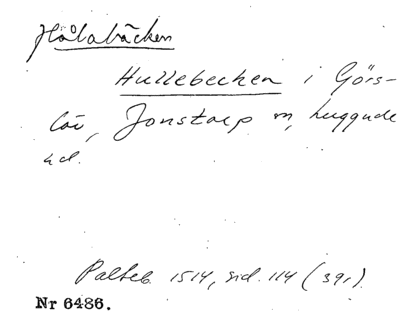 Hålabäcken
Hullebecken i Görs-
löv, Jonstorp sn, Luggude
hd.
Palteb. 1514, sid. 114 (39r).
Nr 6486.